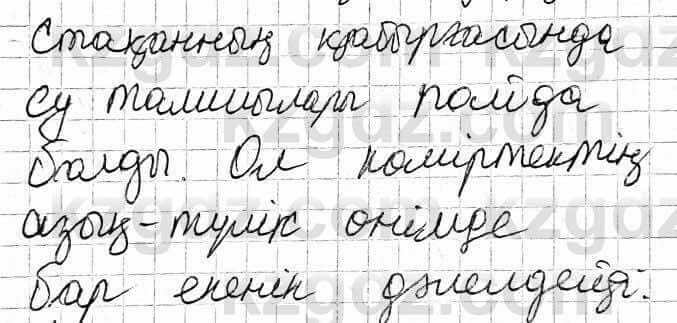 Стақанның қабырғасында
су тамшылары пайда
болды. Ол көміртектің
азық-түлік өнімде
бар екенін дәлелдейді.